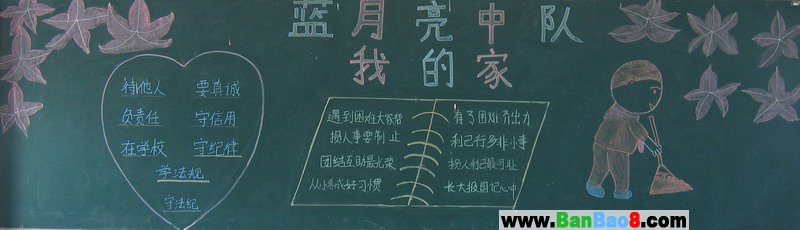 蓝月亮中队
我的家
待他人 要真诚
负责任 守信用
在学校 守纪律
学法规
守法纪
遇到困难大家帮
损人事要制止
团结互助最光荣
从小养成好习惯
有了困难齐出力
利己行多非小事
损人利己最可耻
长大报国记心中
www.BanBao8.com